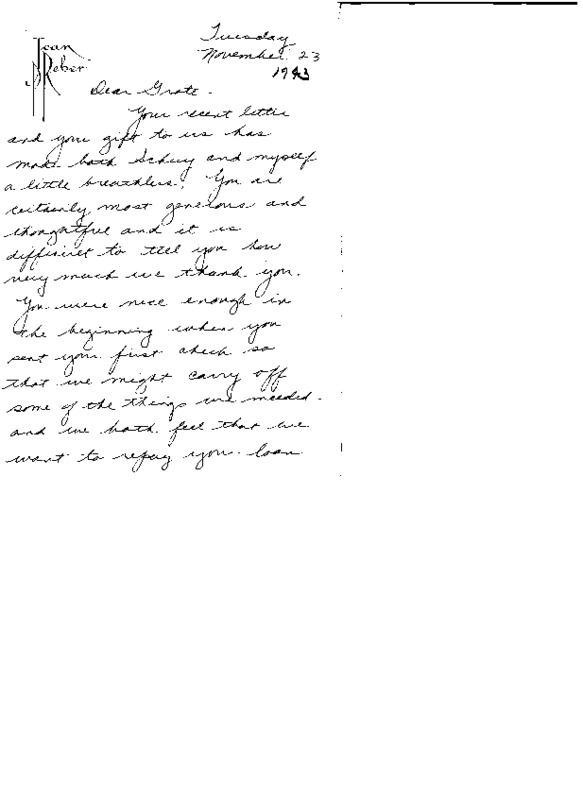 Jean
Reber
Tuesday
November 23
1943
Dear Grote -
Your recent letter
and your gift to us has
made both Schuy and myself
a little breathless! You are
certainly most generous and
thoughtful and it is
difficult to tell you how
very much we thank you.
You were nice enough in
the beginning when you
sent your first check so
that we might carry off
some of the things we needed -
and we both feel that we
want to repay your loan